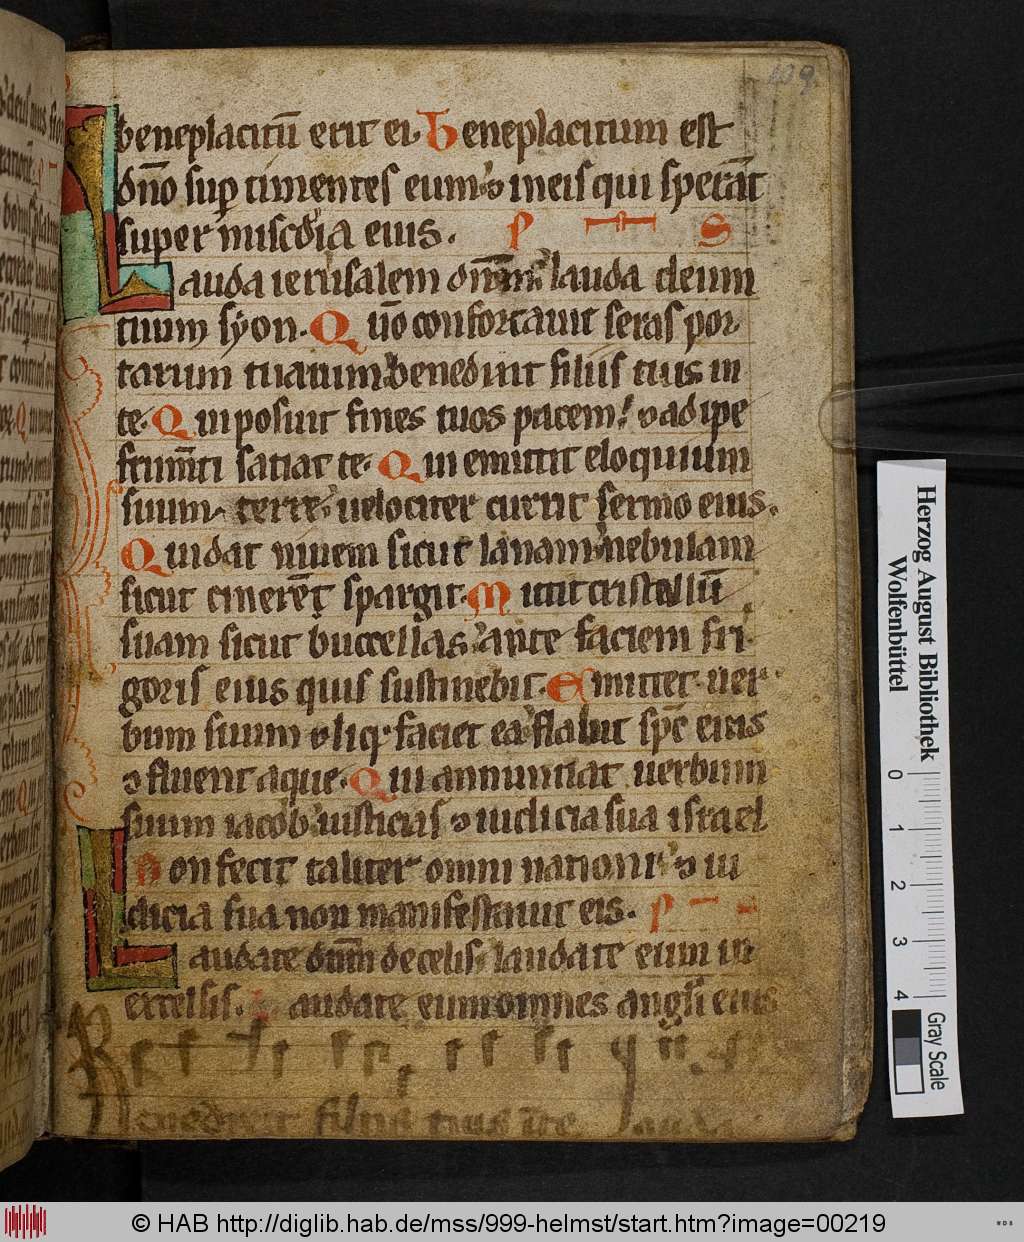 109
beneplacitū erit ei. Beneplacitum est
dn̄o sup timentes eum. ⁊ in eis qui sperāt
super misc̄dia eius. P S
Lauda ierusalem dn̄m lauda deum
tuum syon. Qūo confortauit seras por
tarum tuarum benedixit filiis tuis in
te. Qui posuit fines tuos pacem ⁊ adipe
frum̄ti satiat te. Qui emittit eloquium
suum terre uelociter currit sermo eius.
Qui dat niuem sicut lanam nebulam
sicut cinerem spargit. Mittit cristallū
suam sicut buccellas ante faciem fri
goris eius quis sustinebit. Emittet uer
bum suum ⁊ liq faciet ea flabit sp̄c eius
⁊ fluent aque. Qui annuntiat uerbum
suum iacob iusticias ⁊ iudicia sua israel
Non fecit taliter omni nationi ⁊ iu
dicia sua non manifestauit eis. P
Laudate dn̄m de celis laudate eum in
excelsis. Laudate eum omnes angli eius
Benedixit filiis tuis
Herzog August Bibliothek
Wolfenbüttel
0 1 2 3 4
Gray Scale
© HAB http://diglib.hab.de/mss/999-helmst/start.htm?image=00219